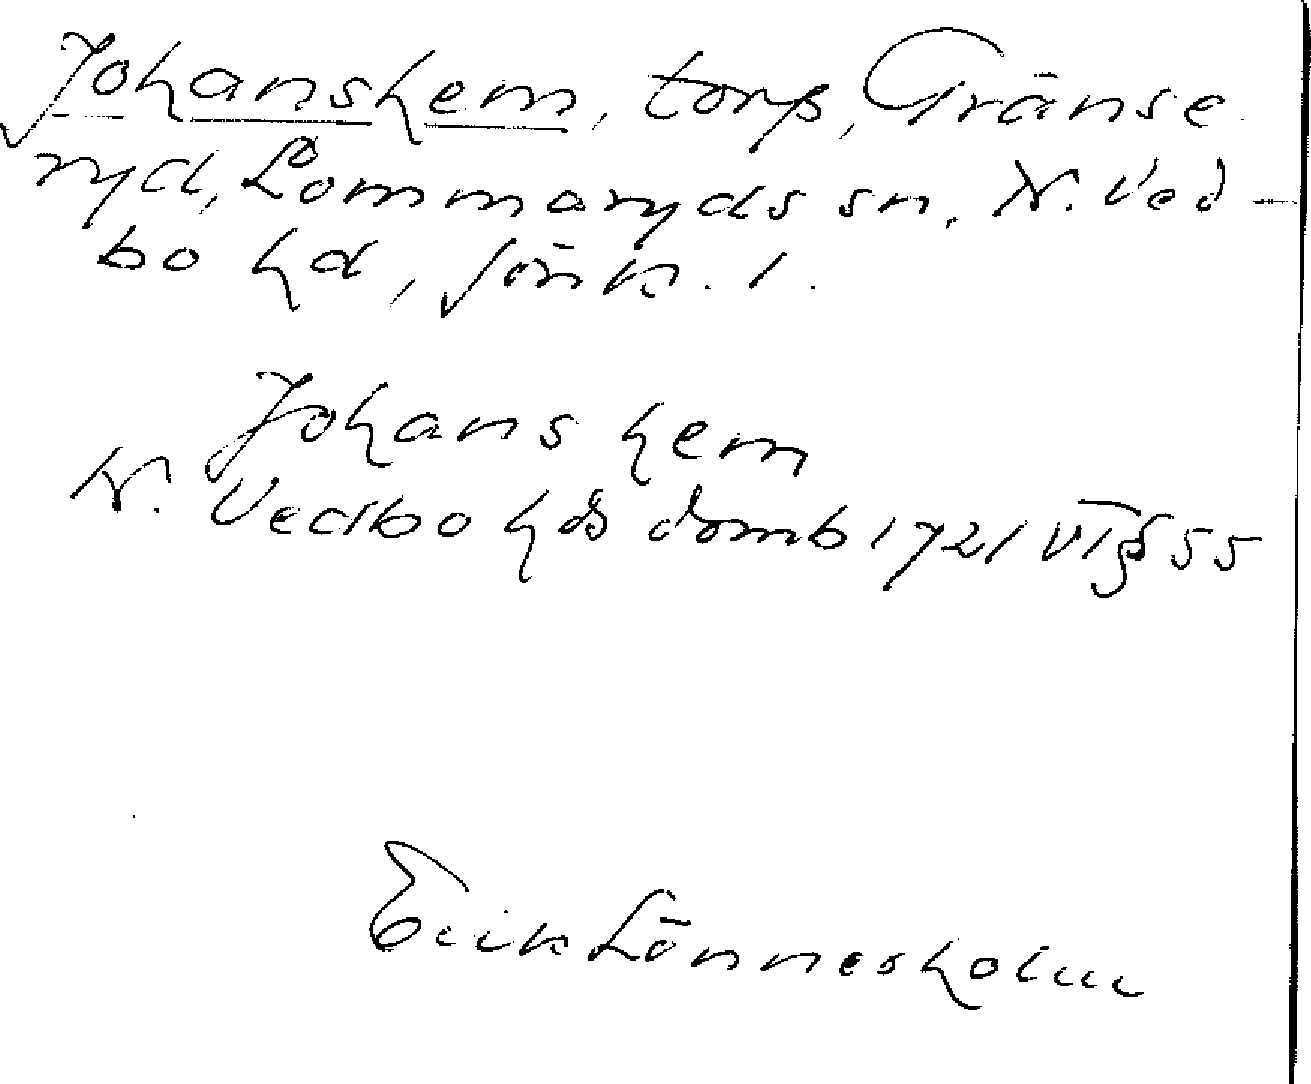 Johanshem, torp, Gränse
ryd, Lommaryds sn, N. Ved-
bo hd, Jönk. l.
Johanshem
N. Vedbo hds domb 1721 VT § 55
Erik Lönnesholm